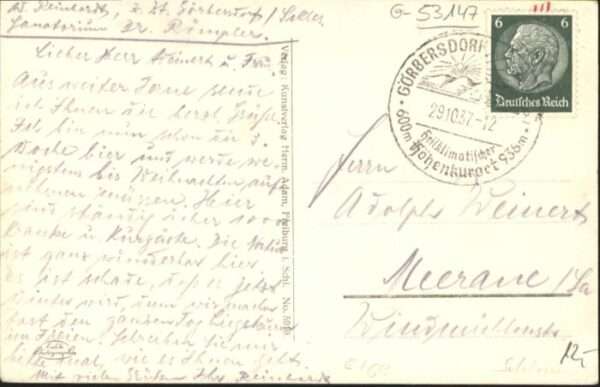 G-53147
Reinhardt, z. Zt. Görbersdorf / Schles.
Sanatorium Dr. Römpler.
Lieber Herr Weinert u. Frau,
Aus weiter Ferne sende
ich Ihnen die herzl. Grüße
bin nun schon die 3.
Woche hier und werde we-
nigstens bis Weihnachten aus-
müssen. Hier
sind ständig über 1000
Kranke u. Kurgäste. Die Natur
ist ganz wunderbar hier.
Es ist schade, daß es jetzt
Winter wird, denn wir machen
fast den ganzen Tag Liegekur
im Freien. Schreiben Sie mir
mal, wie es Ihnen geht.
Mit viel Grüßen Ihr Reinhardt
Verlag: Kunstverlag Herm. Adam, Freiburg i. Schl. No.
6 6
Deutsches Reich
GÖRBERSDORF
29.10.37.-12
Heilklimatischer
600m Höhenkurort 936m
Herrn
Adolph Weinert
Meerane / Sa
Windmühlenstr.
12,-